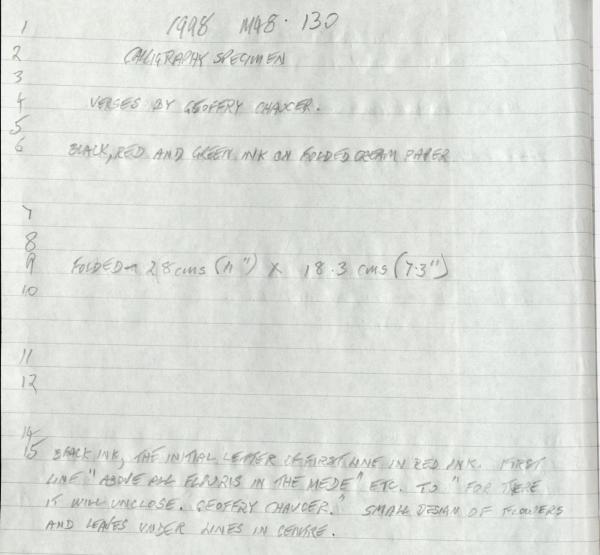 1 1998 M98. 130
2 CALLIGRAPHY SPECIMEN
3
4 VERSES BY GEOFFERY CHAUCER.
5
6 BLACK, RED AND GREEN INK ON FOLDED CREAM PAPER
7
8
9 FOLDED 28 cms (11") X 18.3 cms (7.3")
10
11
12
14
15 BLACK INK, THE INITIAL LETTER OF FIRST LINE IN RED INK. FIRST
LINE "ABOVE ALL FLOURIS IN THE MEDE" ETC. TO "FOR THERE
IT WILL UNCLOSE. GEOFFERY CHAUCER." SMALL DESIGN OF FLOWERS
AND LEAVES UNDER LINES IN CENTRE.